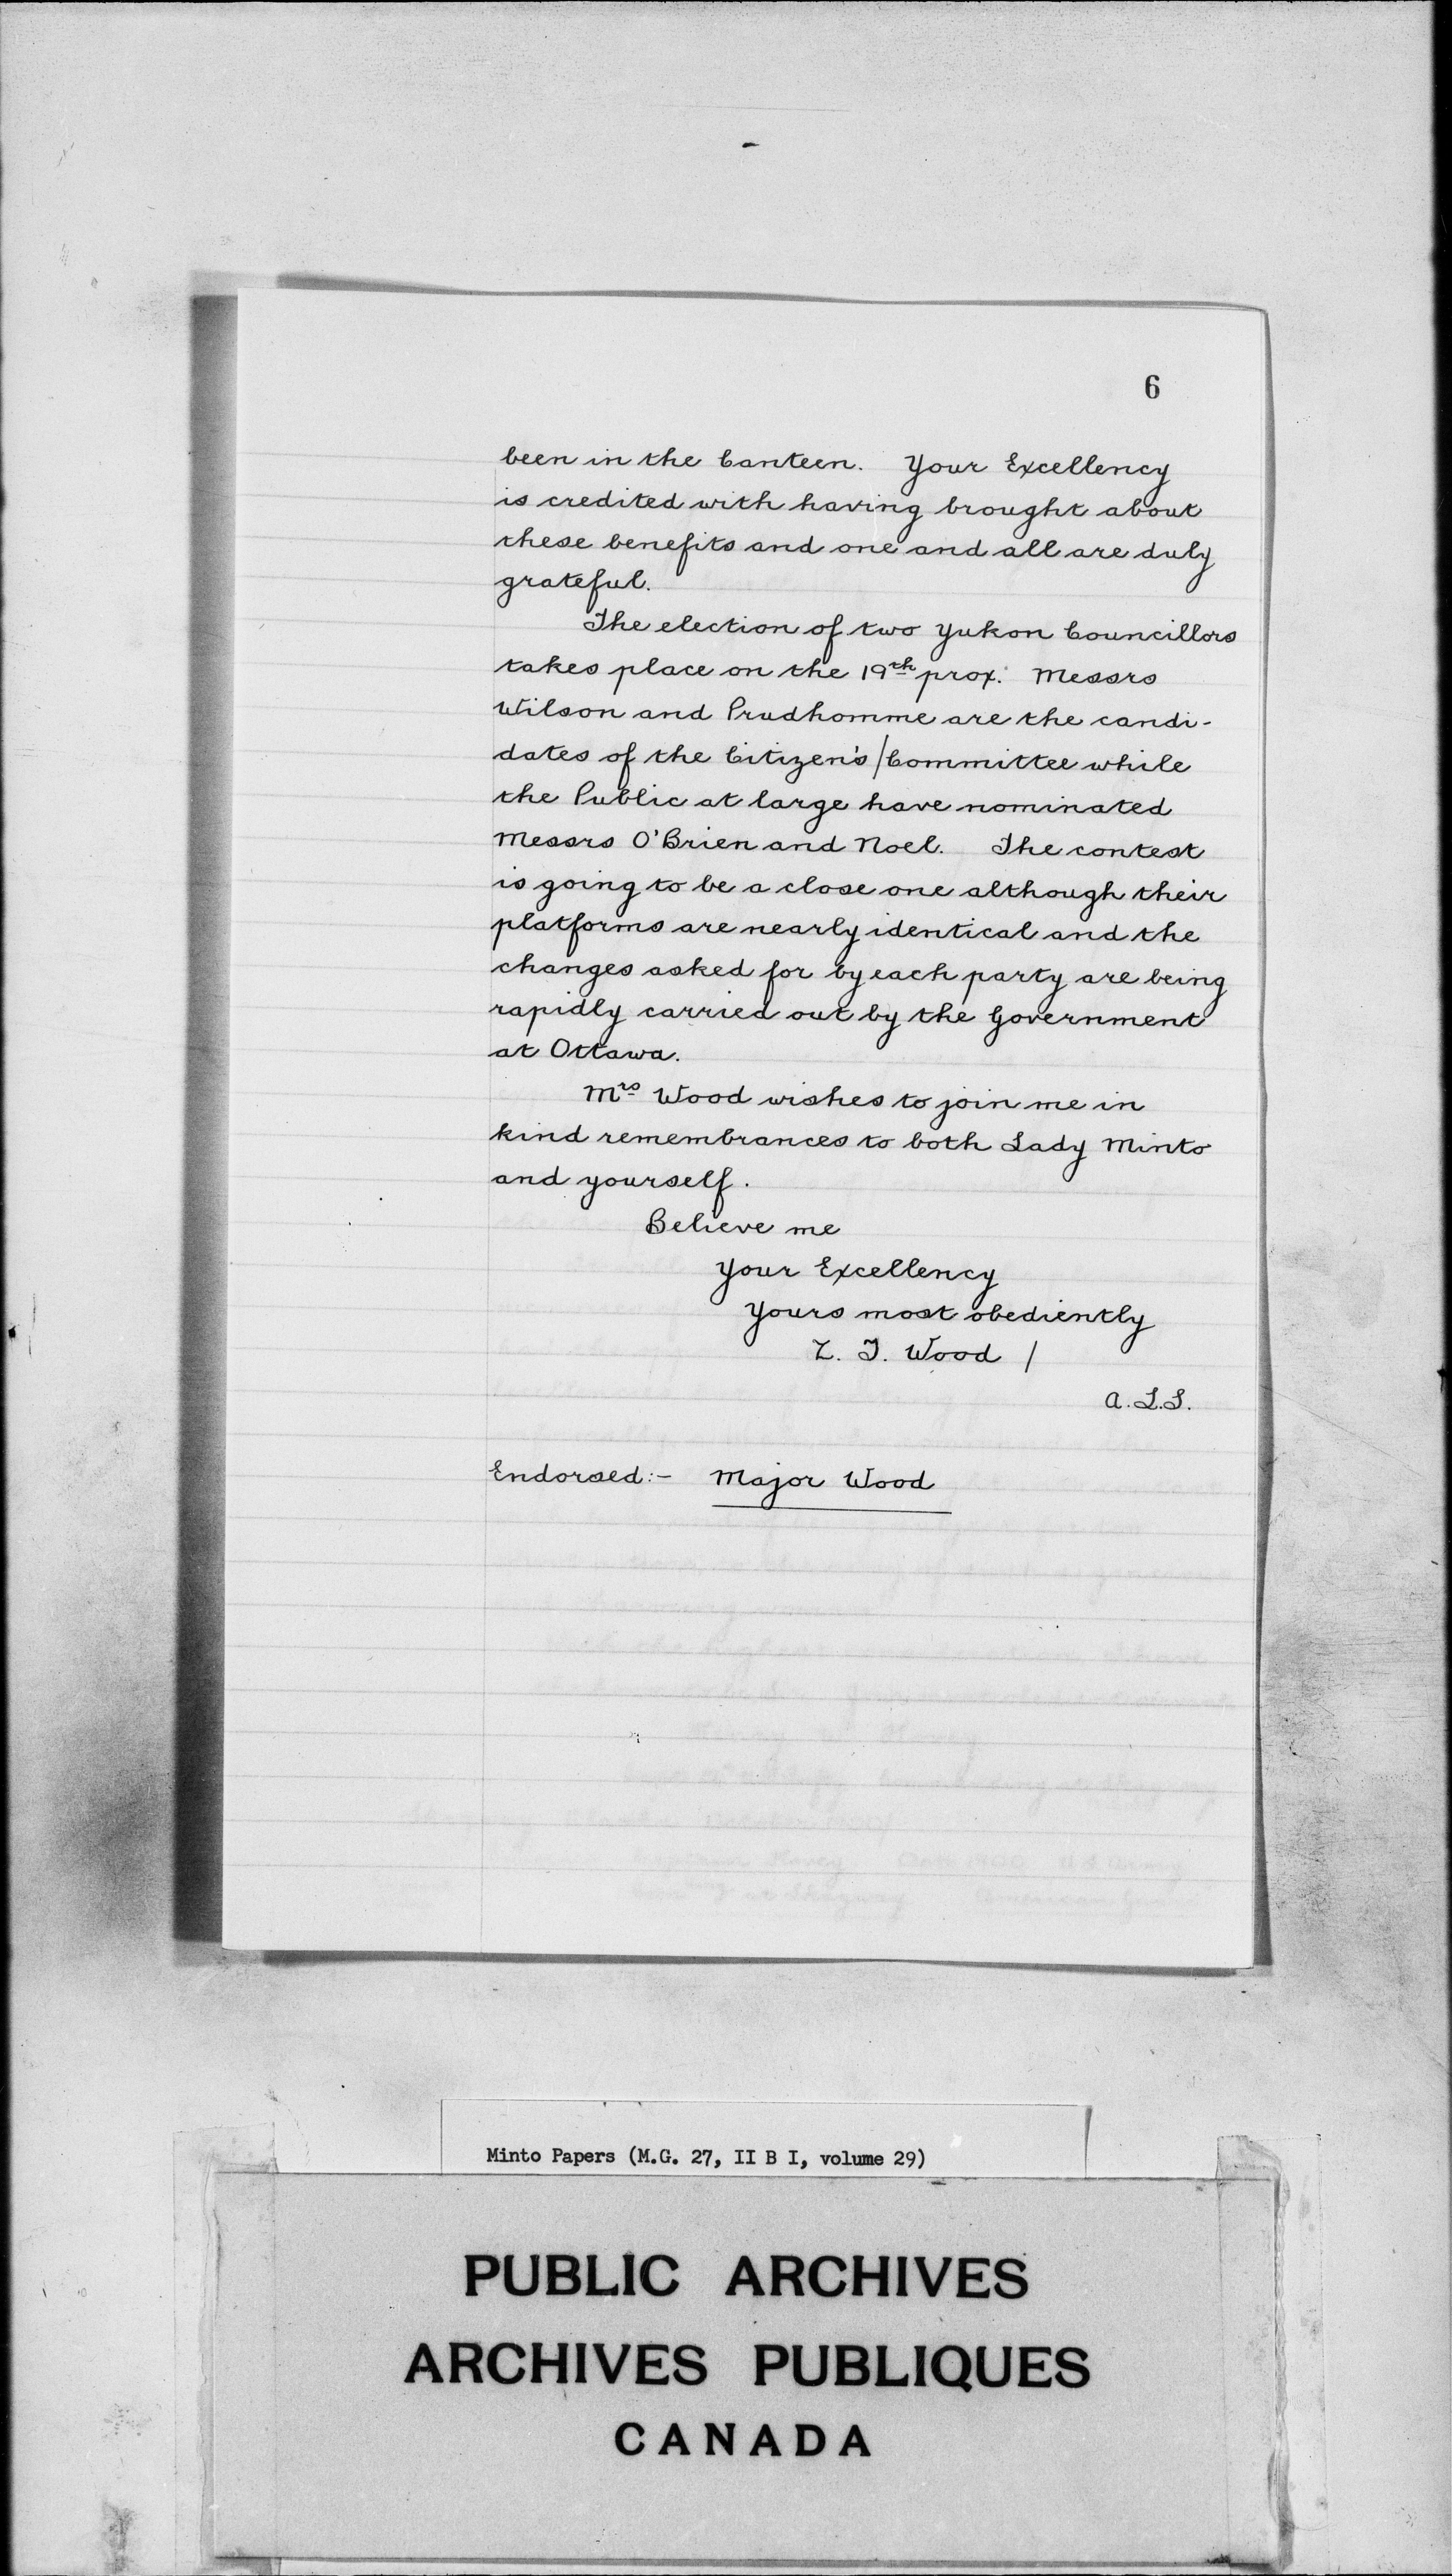 6
been in the Canteen. Your Excellency
is credited with having brought about
these benefits and one and all are duly
grateful.
The election of two Yukon Councillors
takes place on the 19th prox. Messrs
Wilson and Prudhomme are the candi-
dates of the Citizen's/Committee while
the Public at large have nominated
Messrs O'Brien and Noel. The contest
is going to be a close one although their
platforms are nearly identical and the
changes asked for by each party are being
rapidly carried out by the Government
at Ottawa.
Mrs Wood wishes to join me in
kind remembrances to both Lady Minto
and yourself.
Believe me
Your Excellency
Yours most obediently
Z. T. Wood /
A.L.S.
Endorsed:- Major Wood
Minto Papers (M.G. 27, II B I, volume 29)
PUBLIC ARCHIVES
ARCHIVES PUBLIQUES
CANADA